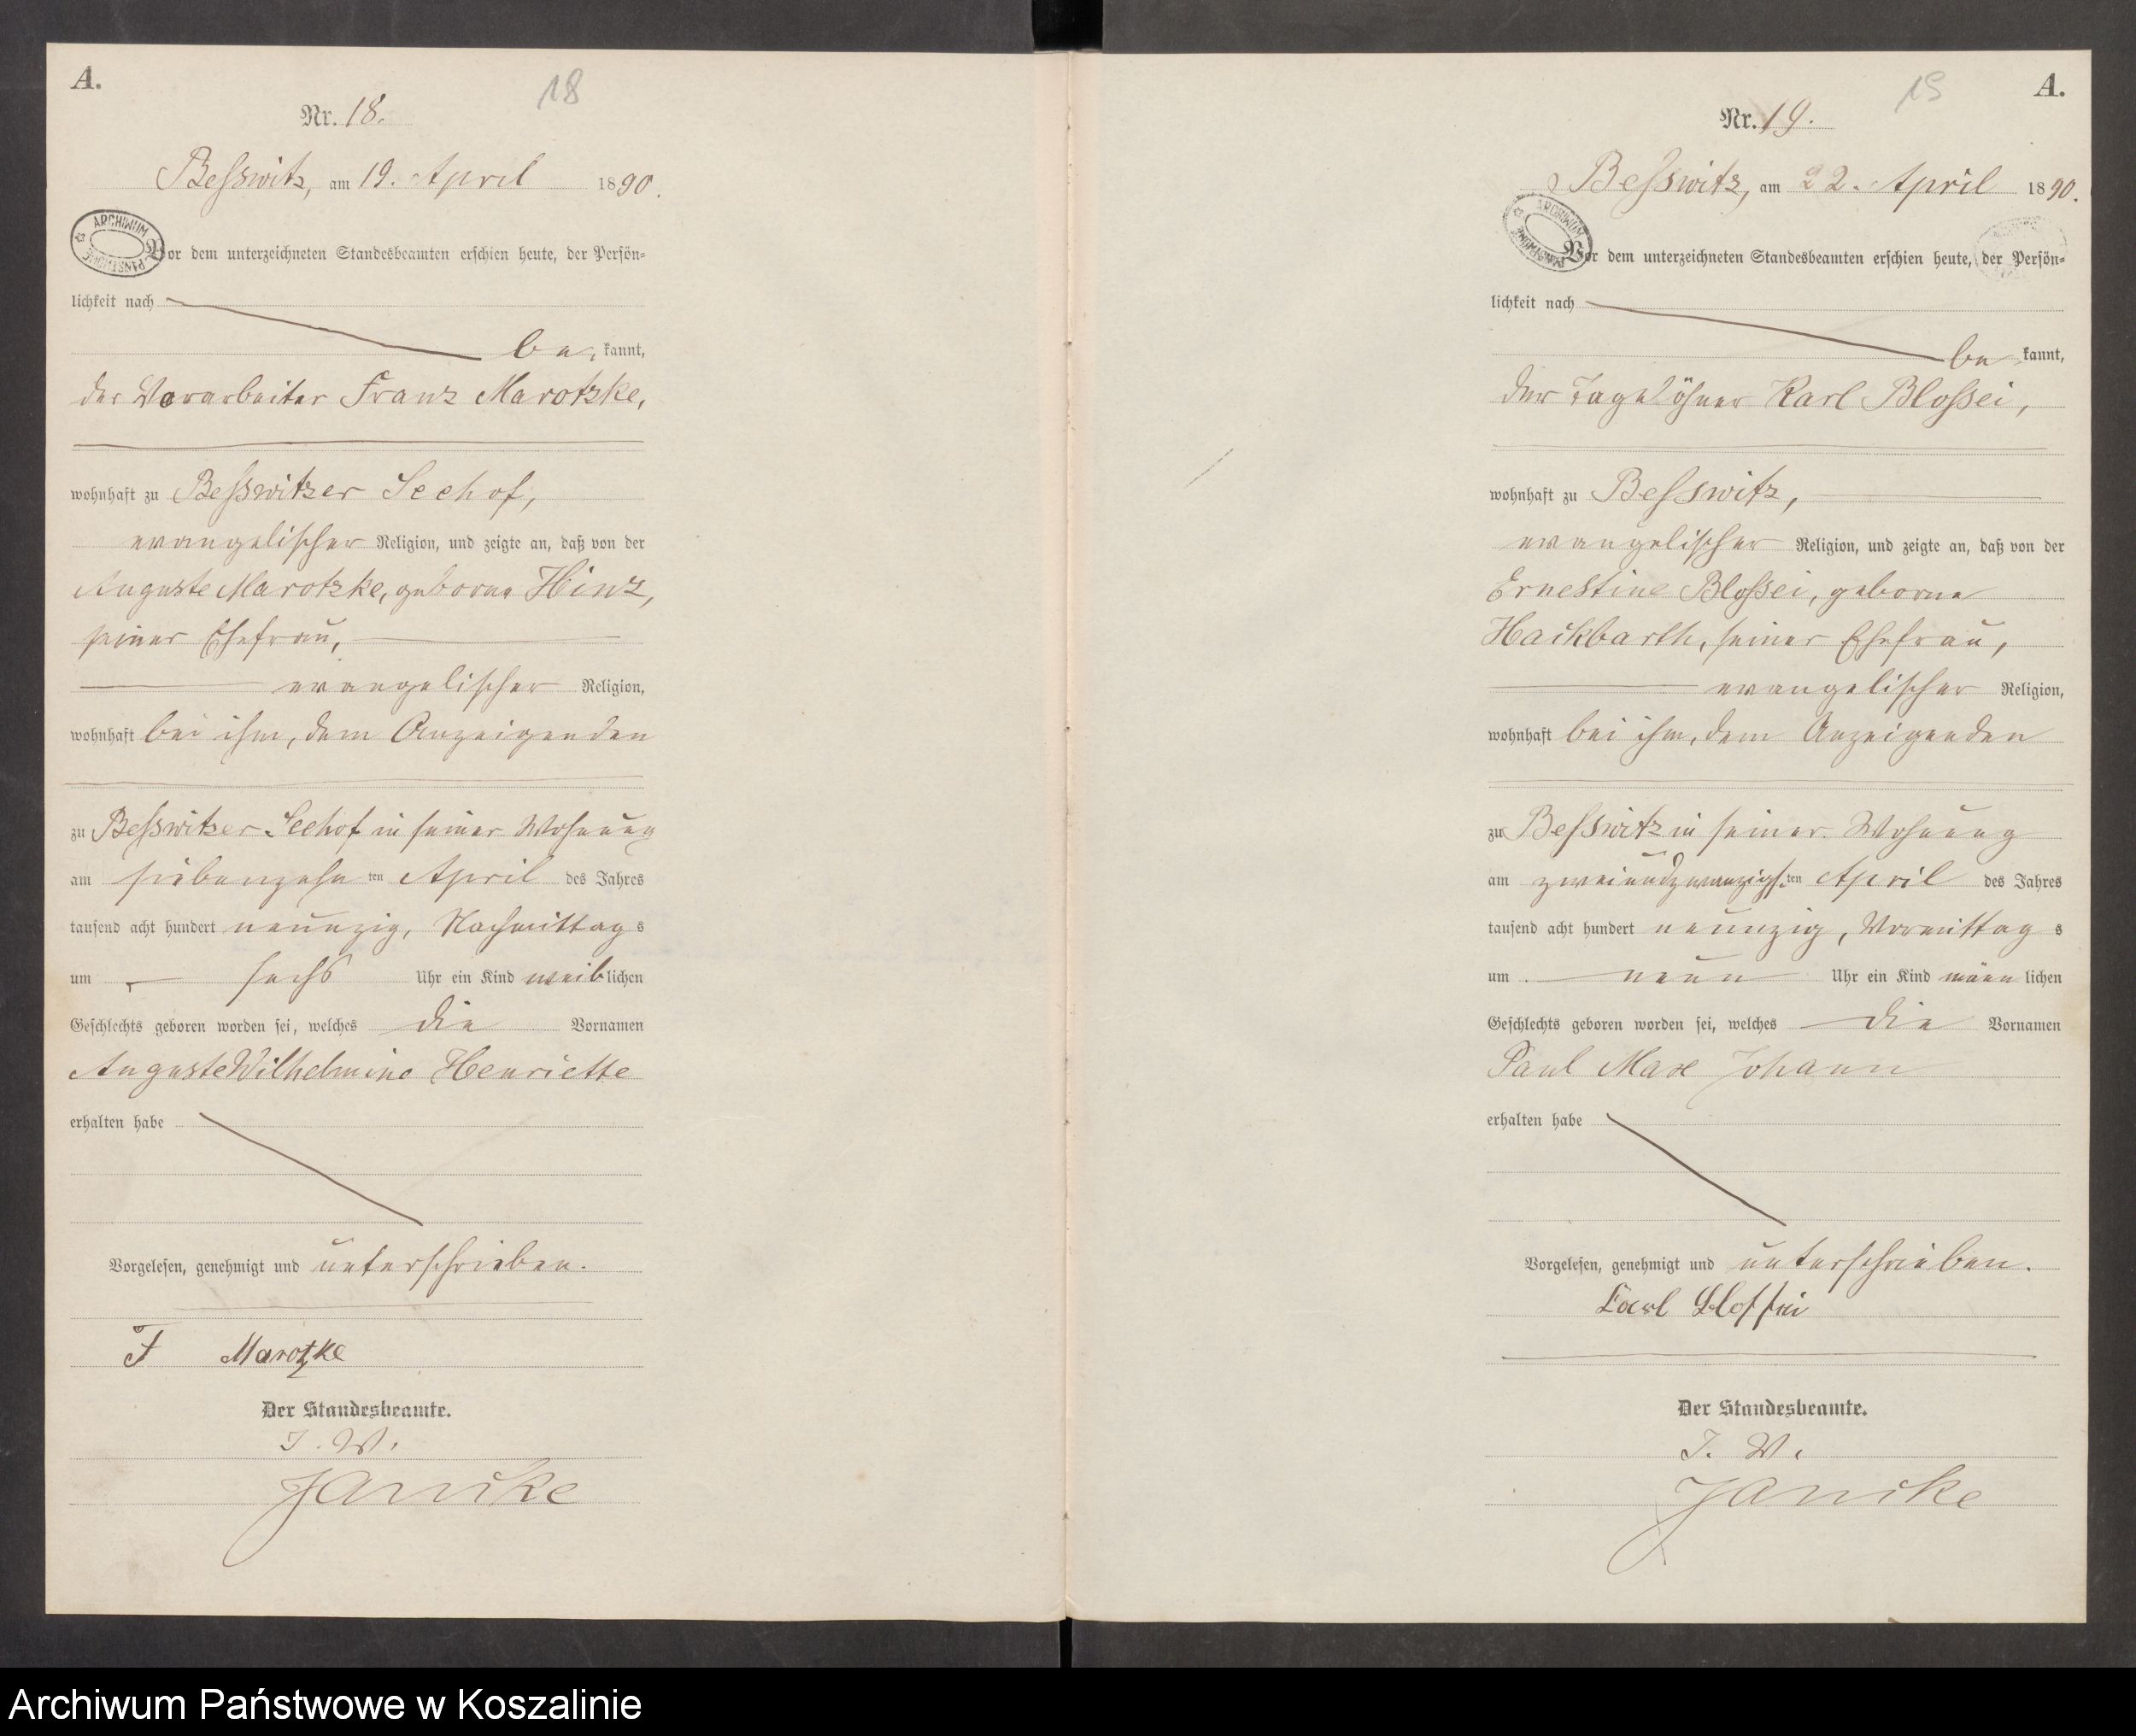 A.
18
Nr. 18.
Besswitz, am 19. April 1890.
ARCHIWUM PAŃSTWOWE
Vor dem unterzeichneten Standesbeamten erschien heute, der Persön-
lichkeit nach
be kannt,
der Vorarbeiter Franz Marotzke,
wohnhaft zu Besswitzer Seehof,
evangelischer Religion, und zeigte an, daß von der
Auguste Marotzke, geborne Hinz,
seiner Ehefrau,
evangelischer Religion,
wohnhaft bei ihm, dem Anzeigenden
zu Besswitzer Seehof in seiner Wohnung
am siebenzehn ten April des Jahres
tausend acht hundert neunzig, Nachmittag s
um sechs Uhr ein Kind weib lichen
Geschlechts geboren worden sei, welches die Vornamen
Auguste Wilhelmine Henriette
erhalten habe
Vorgelesen, genehmigt und unterschrieben.
F Marotzke
Der Standesbeamte.
J. V.
Janike
A.
19
Nr. 19.
Besswitz, am 22. April 1890.
ARCHIWUM PAŃSTWOWE
Vor dem unterzeichneten Standesbeamten erschien heute, der Persön-
lichkeit nach
be kannt,
der Tagelöhner Karl Blossei,
wohnhaft zu Besswitz,
evangelischer Religion, und zeigte an, daß von der
Ernestine Blossei, geborne
Hackbarth, seiner Ehefrau,
evangelischer Religion,
wohnhaft bei ihm, dem Anzeigenden
zu Besswitz in seiner Wohnung
am zweiundzwanzigs ten April des Jahres
tausend acht hundert neunzig, Vormittag s
um neun Uhr ein Kind männ lichen
Geschlechts geboren worden sei, welches die Vornamen
Paul Max Johann
erhalten habe
Vorgelesen, genehmigt und unterschrieben.
Karl Blossei
Der Standesbeamte.
J. V.
Janike
Archiwum Państwowe w Koszalinie